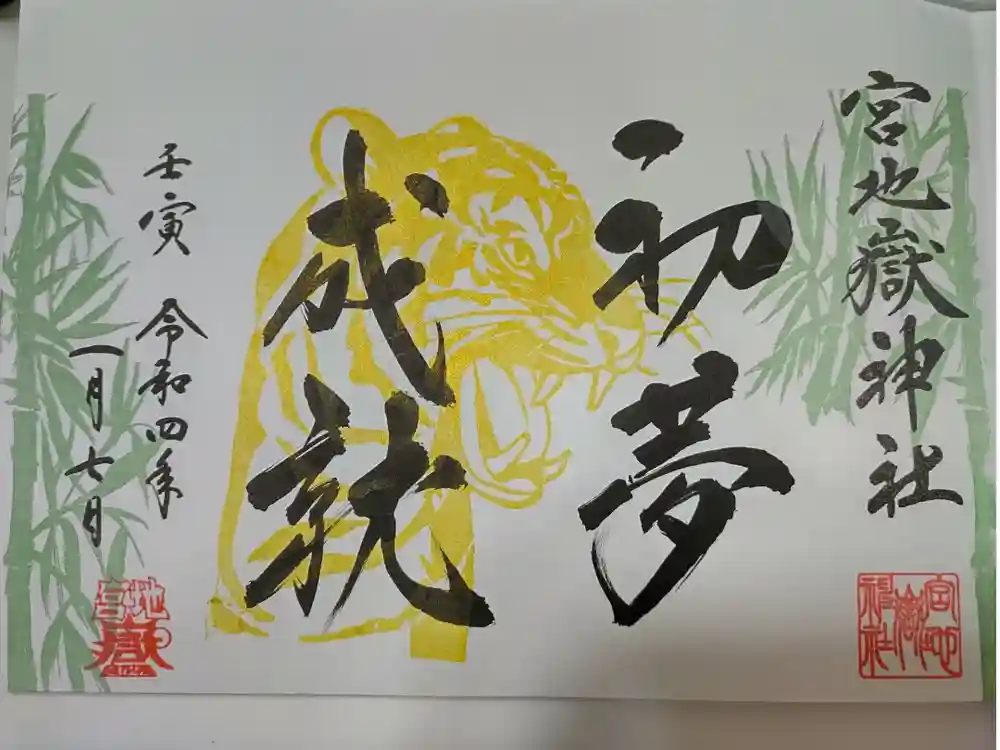 宮地嶽神社
初夢
成就
壬寅 令和四年
一月七日
宮地嶽神社
宮地嶽